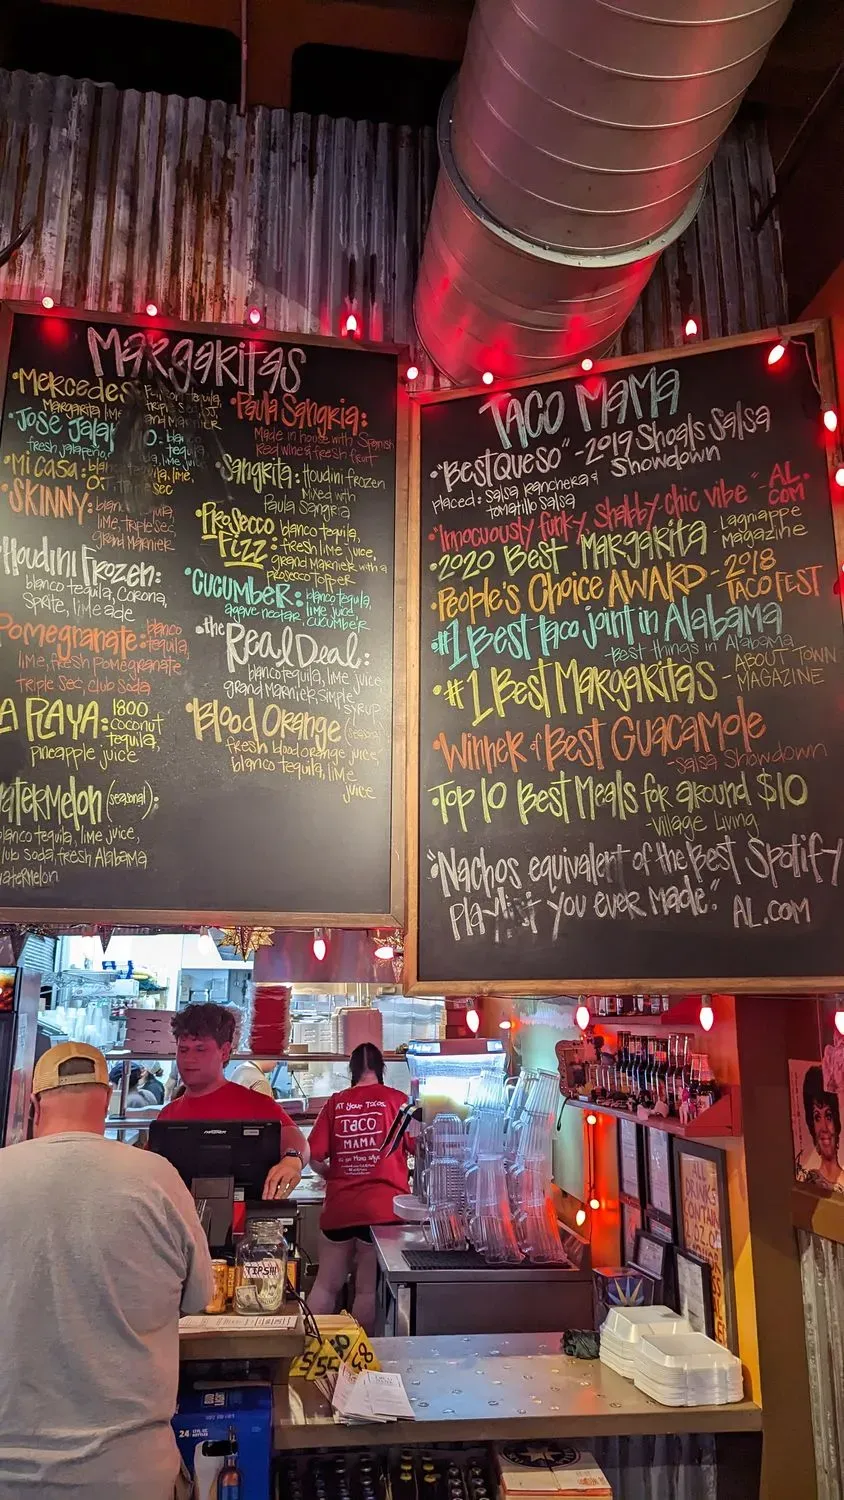 Margaritas
•Mercedes
Margarita
•José
fresh jalapeño,
•Mi Casa:
•SKINNY:
lime, triple sec
grand Marnier
Houdini Frozen:
blanco tequila, Corona,
Sprite, limeade
Pomegranate: blanco
tequila,
lime, fresh pomegranate
triple sec, club soda
LA PLAYA: 1800
coconut
tequila,
pineapple juice
Watermelon (seasonal):
blanco tequila, lime juice,
club soda, fresh Alabama
watermelon
•Paula Sangria:
Made in house with Spanish
Red wine & fresh fruit
•Sangrita: Houdini frozen
Mixed with
Paula Sangria
•Prosecco Fizz: blanco tequila,
fresh lime juice,
grand Marnier with a
prosecco topper
•Cucumber: blanco tequila,
agave nectar, lime juice,
cucumber
•the Real Deal:
blanco tequila, lime juice
grand Marnier, simple
syrup
•Blood Orange (seasonal)
fresh blood orange juice,
blanco tequila, lime
juice
TACO MAMA
•"Best Queso" -2019 Shoals Salsa
Showdown
placed: salsa ranchera &
tomatillo salsa
•"Innocuously funky, shabby-chic vibe" -AL.
com
•2020 Best Margarita Lagniappe
Magazine
•People's Choice AWARD -2018
TACO FEST
•#1 Best taco joint in Alabama
-Best things in Alabama
•#1 Best Margaritas - ABOUT TOWN
MAGAZINE
•Winner of Best Guacamole
-Salsa Showdown
•Top 10 Best Meals for around $10
-Village Living
•"Nachos equivalent of the Best Spotify
Playlist you ever made." AL.COM
At your tacos.
TACO
MAMA
TIPS!!!
ALL
DRINKS
CONTAIN
24